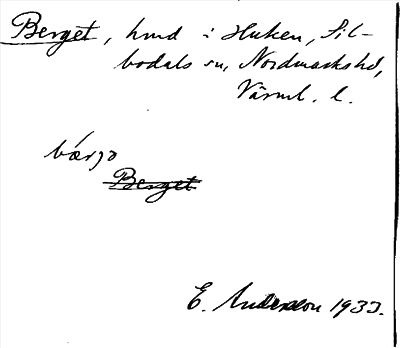 Berget, hmd i Huken, Sil-
bodals sn, Nordmarks hd,
Värml. l.
bærjə
Berget
E. Andersson 1933.